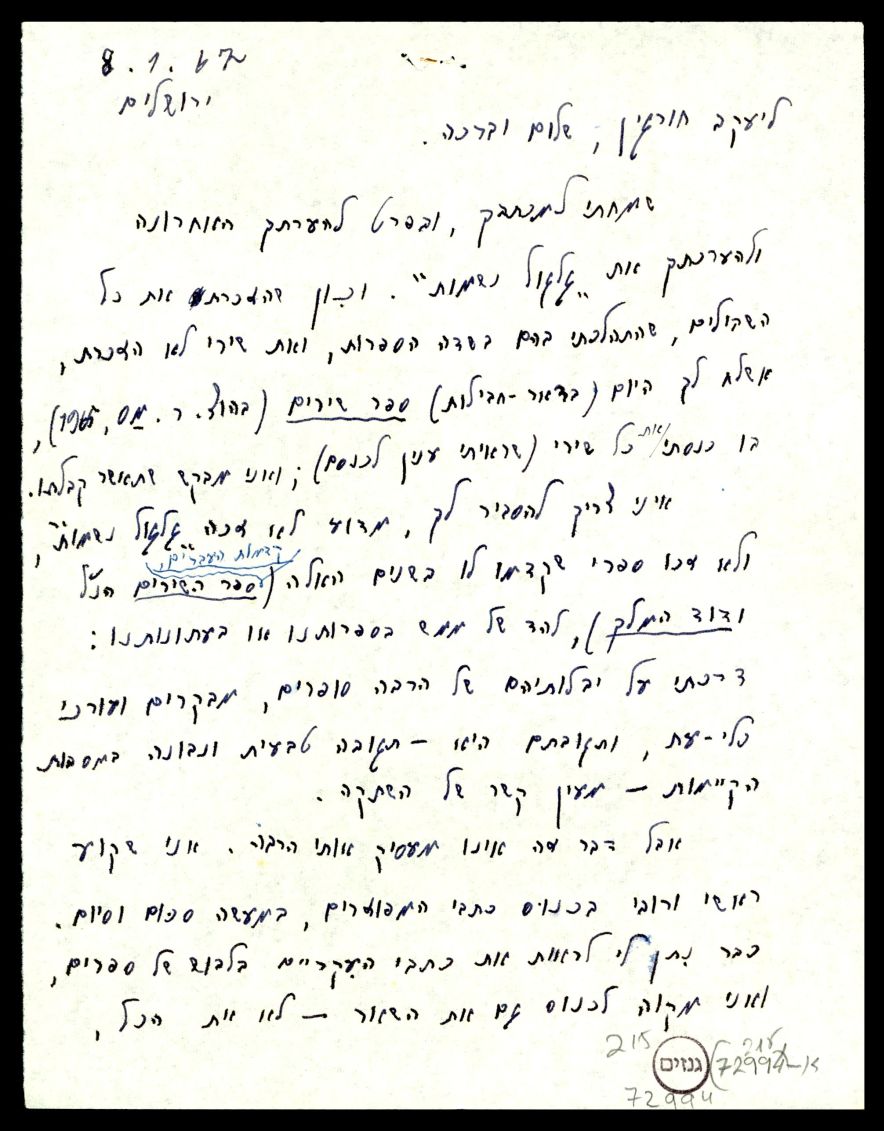 8.1.67
ירושלים
ליעקב חורגין, שלום וברכה.
שמחתי למכתבך, ובפרט להערתך האחרונה
ולהערכתך את "גלגול נשמות". וכֵון שהזכרת את כל
השבילים, שהתהלכתי בהם בשדה הספרות, ואת שירי לא הזכרת,
אשלח לך היום (בדאר-חבילות) ספר שירים (בהוצ. ר. מס, 1965),
בו כנסתי את כל שירי (שראיתי ענין לכנסם); ואני מבקש שתאשר קבלתו.
איני צריך להסביר לך, מדוע לא זכה "גלגול נשמות",
קדמות העברים,
ולא זכו ספרי שקדמו לו בשנים האלה (ספר השירים הנ"ל
ודוד המלך), להד של ממש בספרותנו או בעתונותנו:
דרכתי על יבלותיהם של הרבה סופרים, מבקרים ועורכי
כלי-עת, ותגובתם היא – תגובה טבעית ונבונה במסבות
הקיימות – מעין קשר של השתקה.
אבל דבר זה אינו מעסיק אותי הרבה. אני שקוע
ראשי ורובי בכנוס כתבי המפוזרים, במעשה סכום וסיום.
כבר נִתן לי לראות את כתבי העִקריים בלבוש של ספרים,
ואני מקוה לכנוס גם את השאר – לא את הכל,
215
גנזים
72994/א
72994